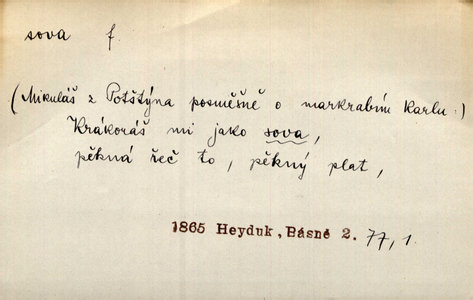 sova f.
(Mikuláš z Potštýna posměšně o markrabím Karlu:)
Krákoráš mi jako sova,
pěkná řeč to, pěkný plat,
1865 Heyduk, Básně 2. 77, 1.